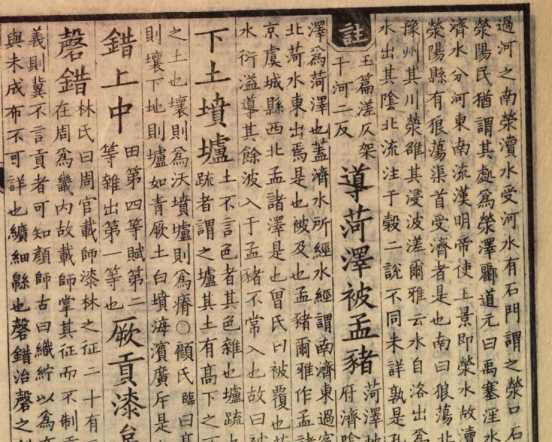 過河之南滎瀆水受河水有石門謂之滎口
滎陽民猶謂其處爲滎澤酈道元曰禹塞淫水
濟水分河東南流漢明帝使王景即滎水故瀆
滎陽縣有狼蕩渠首受濟者是也南曰狼蕩北
豫州其川滎雒其浸波溠爾雅云水自洛出爲
水出其陰北流注于穀二說不同未詳孰是
註
玉篇溠仄架
干河二反
導菏澤被孟豬
菏澤地
府濟陰
澤爲菏澤也蓋濟水所經水經謂南濟東過
北菏水東出焉是也被及也孟豬爾雅作孟
京虞城縣西北孟諸澤是也曾氏曰被覆也
水衍溢導其餘波入于孟豬不常入也故曰被
下土墳壚
土不言色者其色雜也壚疏
疏者謂之壚其土有髙下之不
之土也壤則爲沃墳壚則爲瘠○顧氏臨曰髙
則壤下地則壚如青厥土白墳海濵廣斥是
錯上中
田第四等賦第二
等雜出第一等也
厥貢漆枲
磬錯
林氏曰周官載師漆林之征二十有
在周爲畿內故載師掌其征而不制
義則冀不言貢者可知顔師古曰織紵以爲布
與未成布不可詳也纊細緜也磬錯治磬之